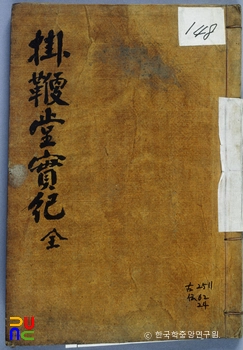 掛鞭堂實紀 全
148
古 2511
62
24
© 한국학중앙연구원